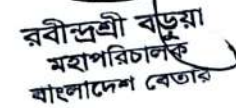 রবীন্দ্রশ্রী বড়ুয়া
মহাপরিচালক
বাংলাদেশ বেতার